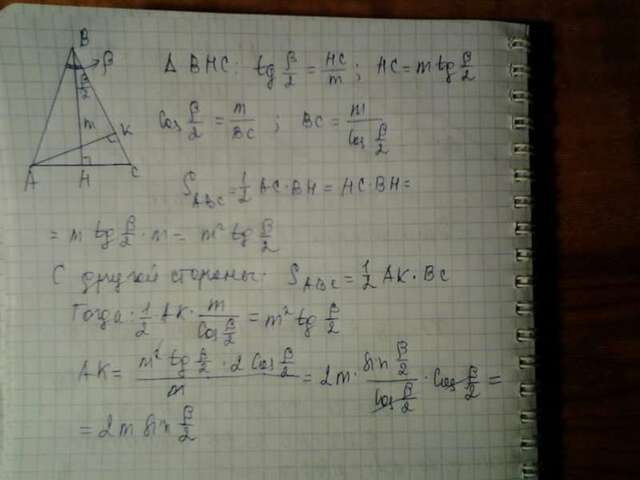 B
β
β/2
m
K
A
H
C
Δ BHC: tg β/2 = HC/m; HC = m tg β/2
Cos β/2 = m/BC; BC = m/Cos β/2
S_ABC = 1/2 AC·BH = HC·BH =
= m tg β/2 · m = m² tg β/2
С другой стороны: S_ABC = 1/2 AK·BC
Тогда: 1/2 · AK · m/Cos β/2 = m² tg β/2
AK = m² tg β/2 · 2 Cos β/2 / m = 2m · Sin β/2 / Cos β/2 · Cos β/2 =
= 2m Sin β/2